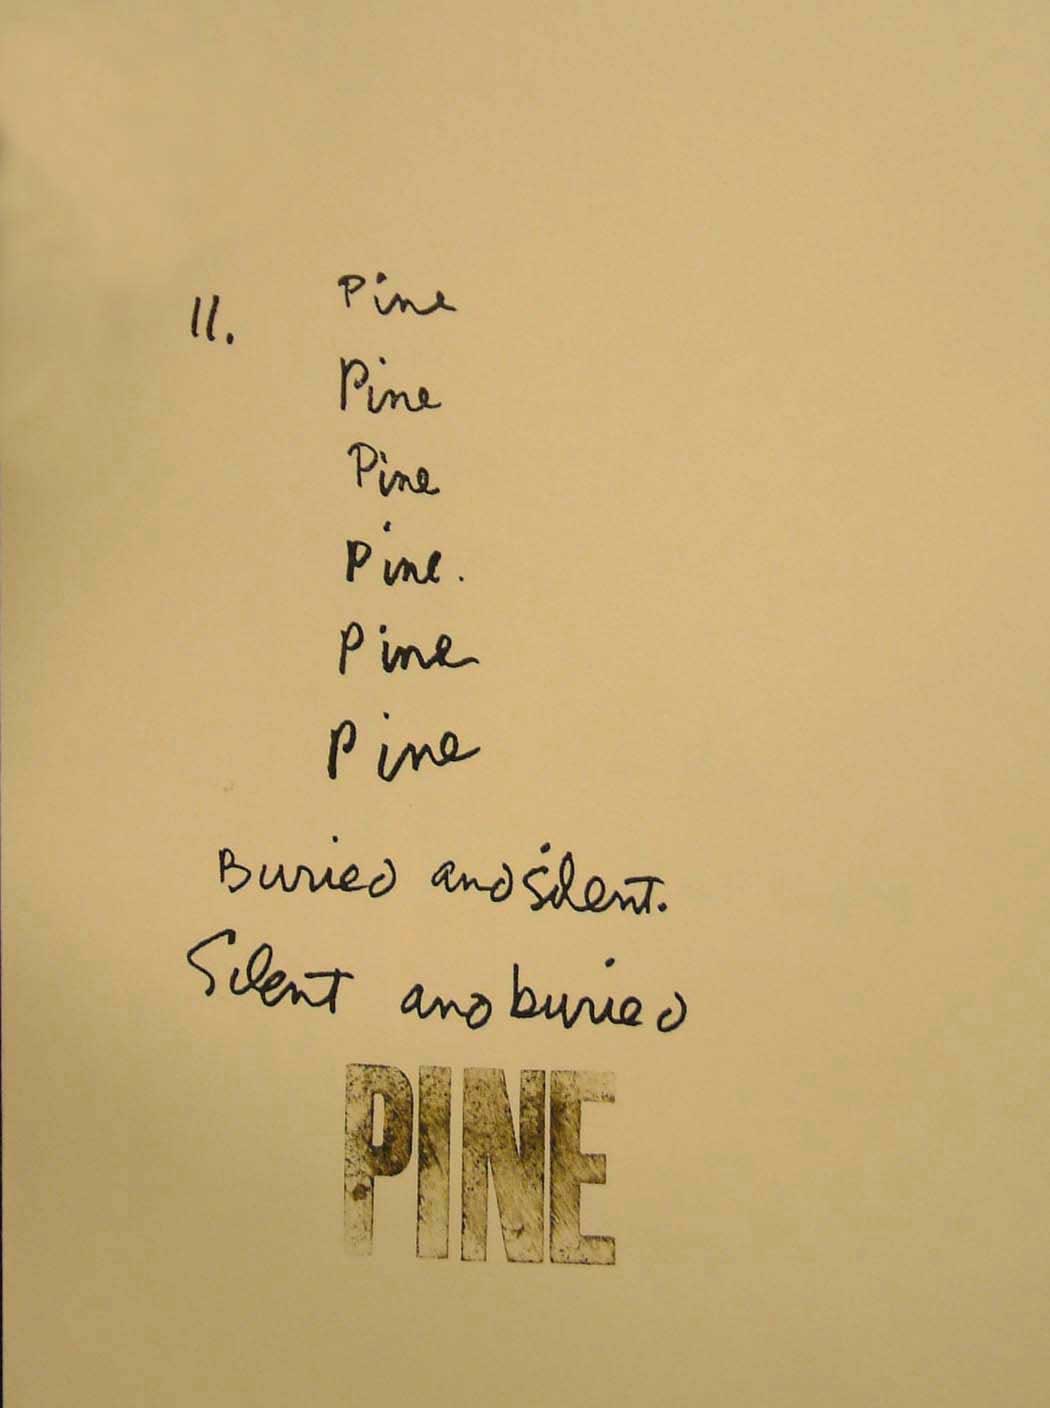 11. Pine
Pine
Pine
Pine.
Pine
Pine
Buried and silent.
Silent and buried
PINE